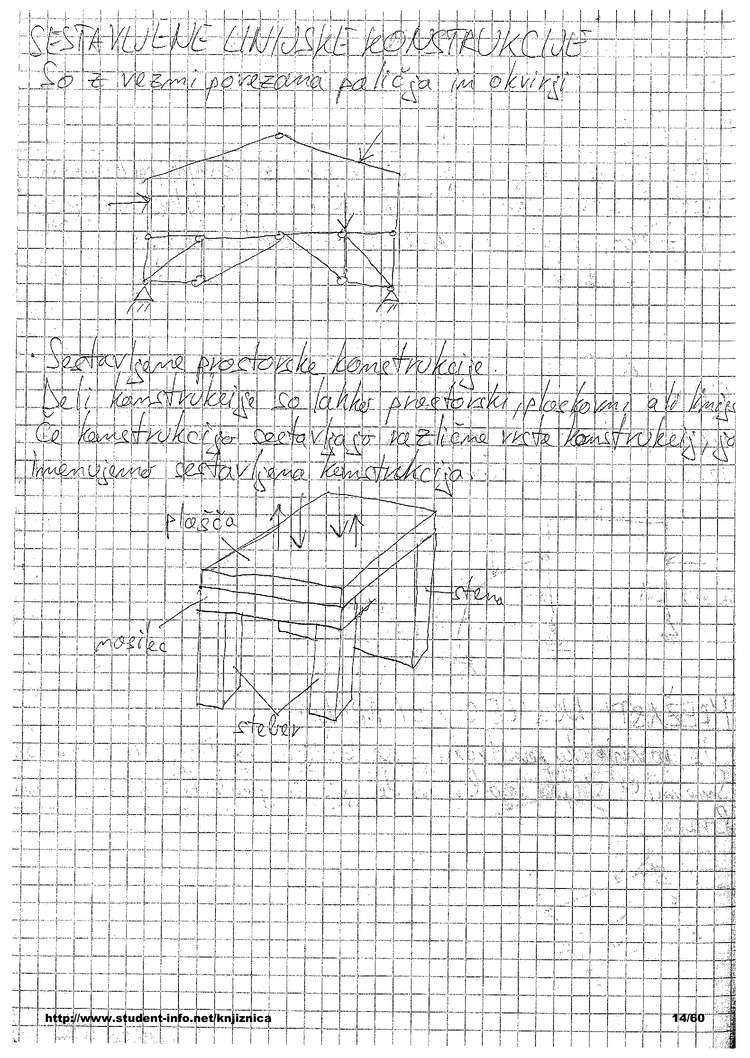 SESTAVLJENE LINIJSKE KONSTRUKCIJE
So z vezmi povezana paličja in okvirji
• Sestavljene prostorske konstrukcije.
Deli konstrukcije so lahko prostorski, ploskovni ali linijs
Če konstrukcijo sestavljajo različne vrste konstrukcij, jo
imenujemo sestavljena konstrukcija.
plošča
stena
nosilec
steber
http://www.student-info.net/knjiznica
14/60